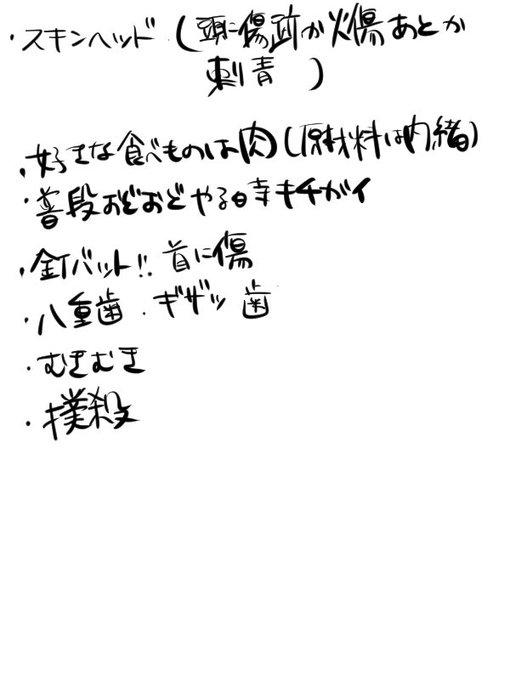 ・スキンヘッド（頭に傷跡か火傷あとか
刺青　）
・好きな食べものは肉（原材料は内緒）
・普段おどおどやる時キチガイ
・釘バット!! 首に傷
・八重歯．ギザッ歯
・むきむき
・撲殺